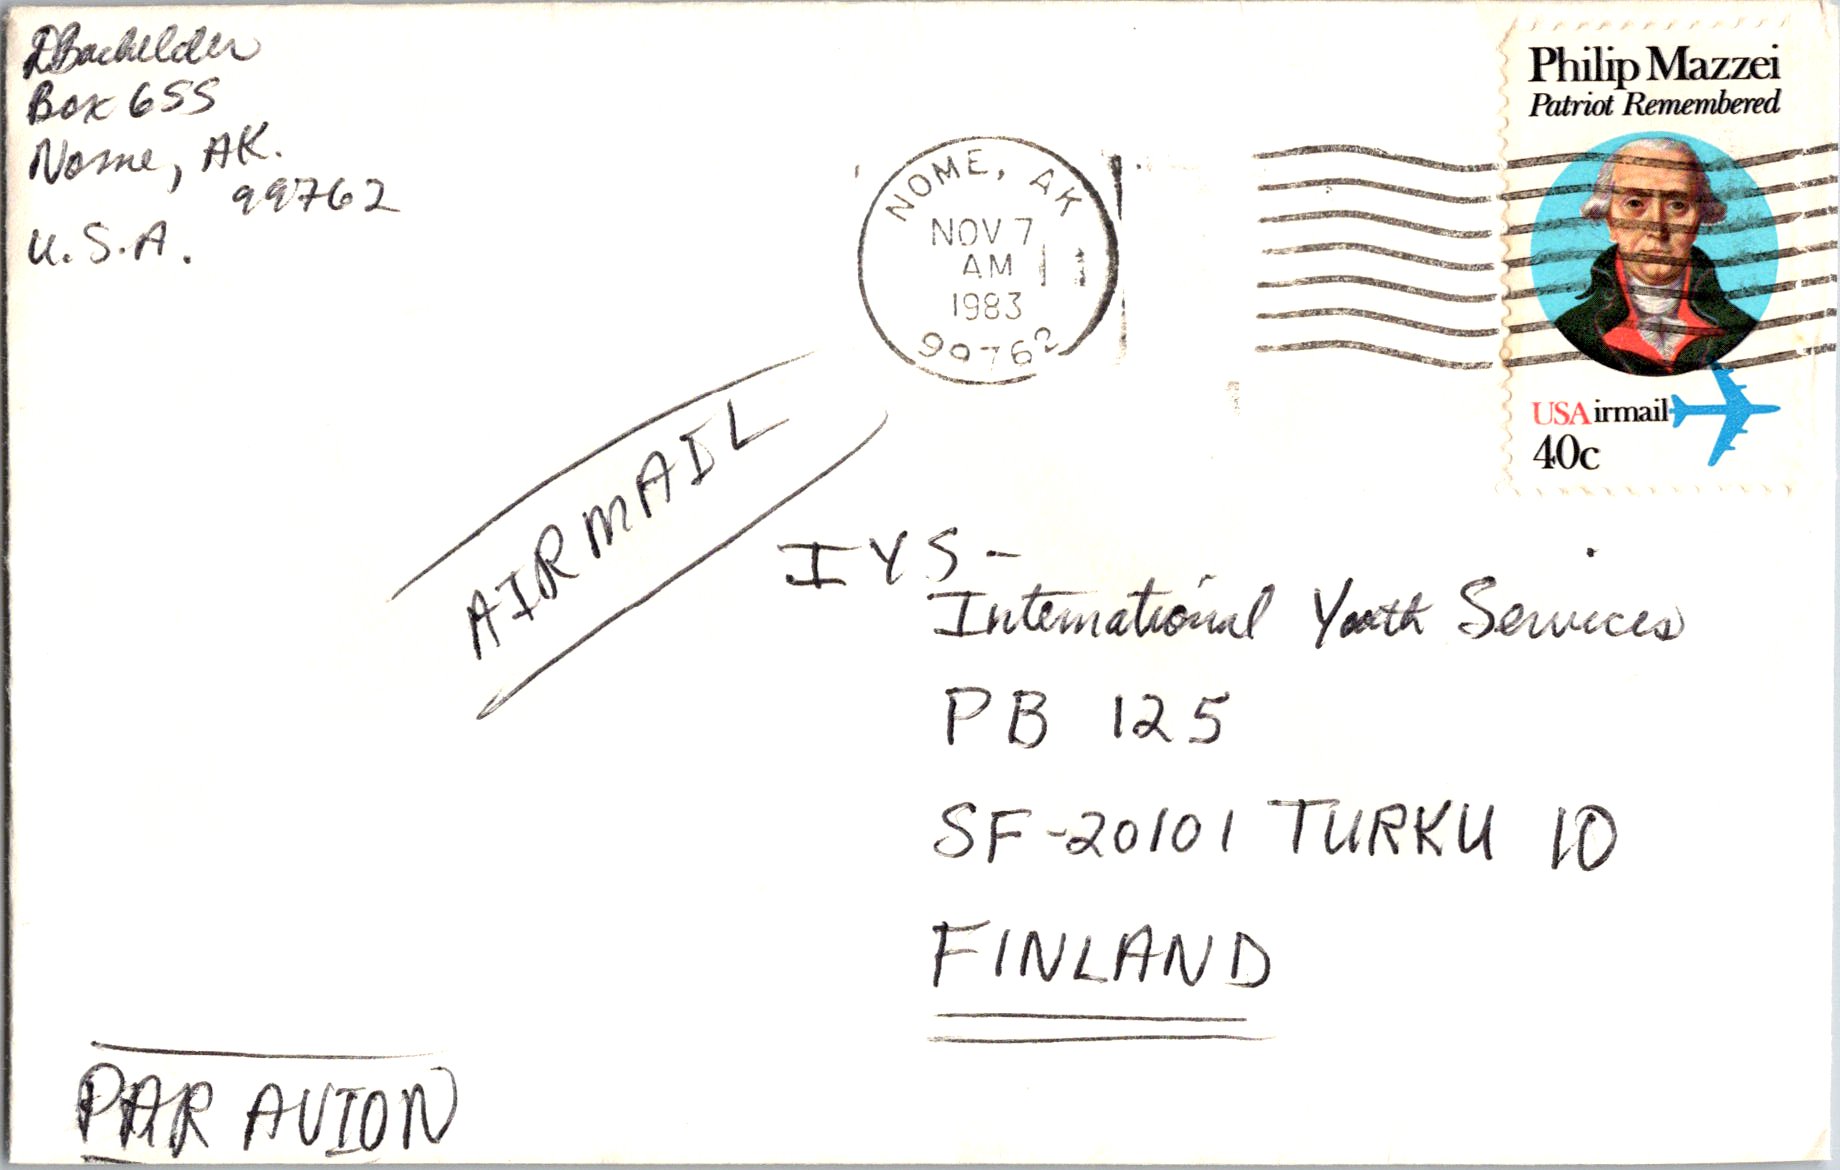 D Bachelder
Box 655
Nome, AK.
99762
U.S.A.
NOME, AK
NOV 7
AM
1983
99762
Philip Mazzei
Patriot Remembered
USAirmail
40c
AIRMAIL
IYS-
International Youth Services
PB 125
SF-20101 TURKU 10
FINLAND
PAR AVION